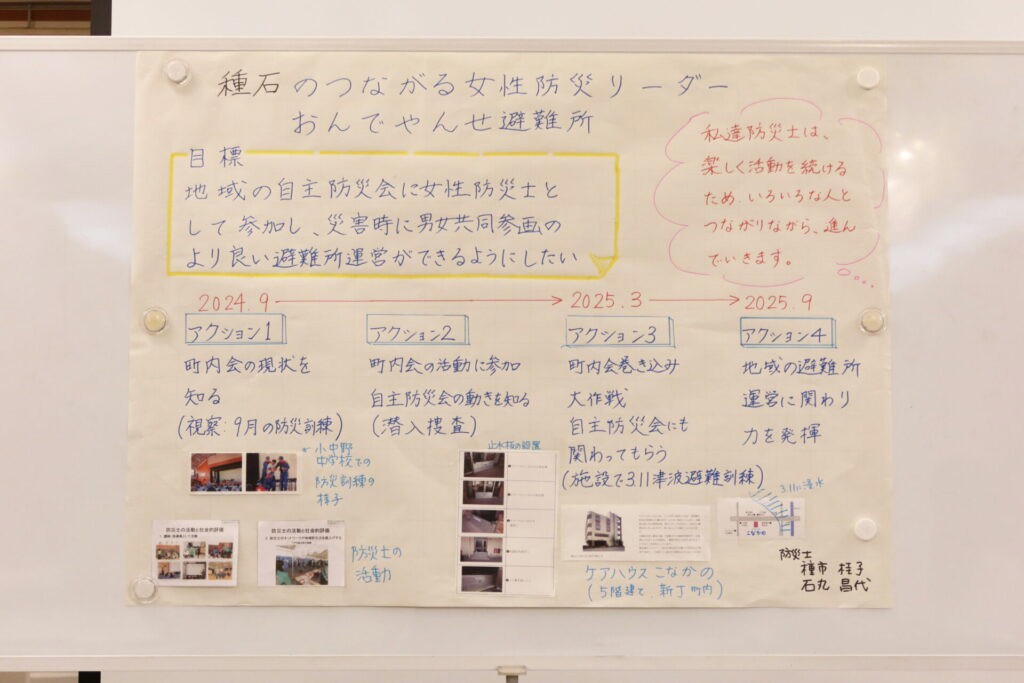 種石のつながる女性防災リーダー
おんでやんせ避難所
目標
地域の自主防災会に女性防災士と
して参加し、災害時に男女共同参画の
より良い避難所運営ができるようにしたい
私達防災士は、
楽しく活動を続ける
ため、いろいろな人と
つながりながら、進ん
でいきます。
2024.9
2025.3
2025.9
アクション1
町内会の現状を
知る
(視察:9月の防災訓練)
小中野
中学校での
防災訓練の
様子
防災士の活動と社会的評価
防災士の活動と社会的評価
防災士の
活動
アクション2
町内会の活動に参加
自主防災会の動きを知る
(潜入捜査)
止水板の設置
アクション3
町内会巻き込み
大作戦
自主防災会にも
関わってもらう
(施設で3.11津波避難訓練)
ケアハウス こなかの
(5階建て、新丁町内)
アクション4
地域の避難所
運営に関わり
力を発揮
3.11の浸水
こなかの
防災士
種市 桂子
石丸 昌代